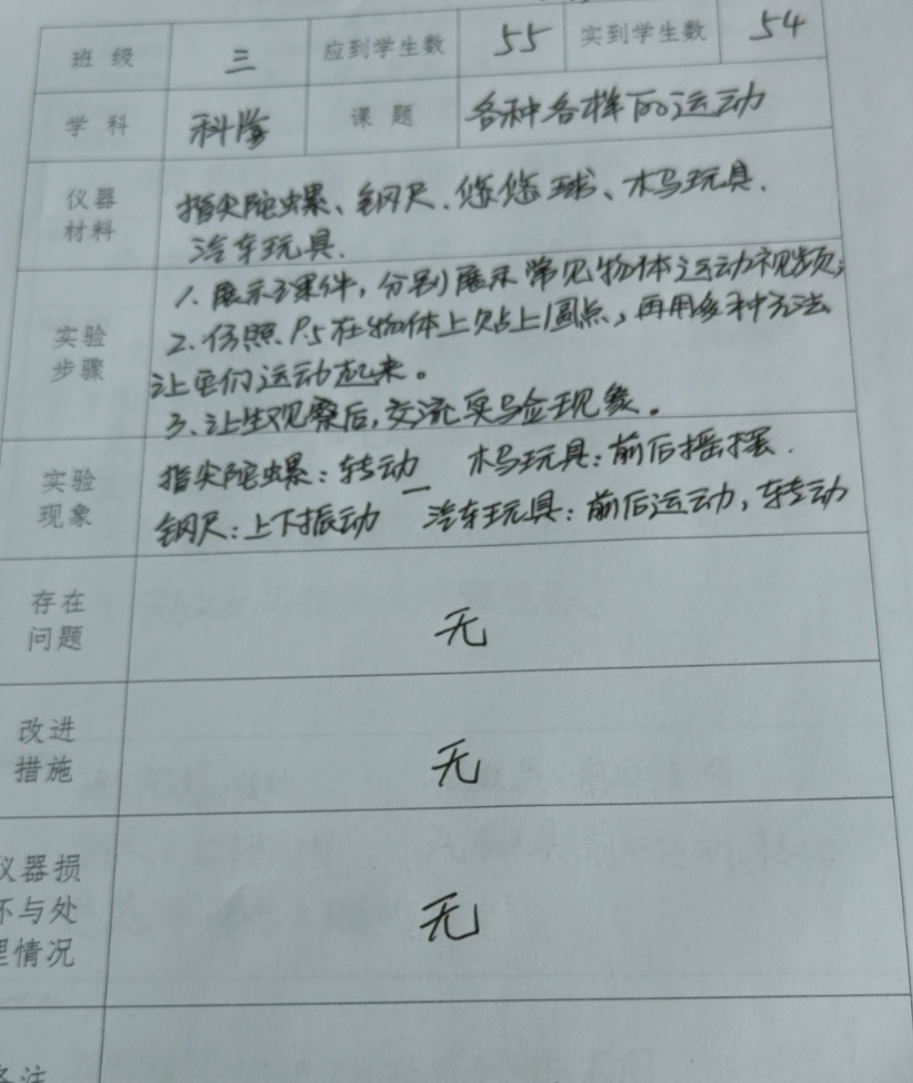 班级 三 应到学生数 55 实到学生数 54
学科 科学 课题 各种各样的运动
仪器
材料
指尖陀螺、钢尺、悠悠球、木马玩具、
汽车玩具.
实验
步骤
1. 展示课件,分别展示常见物体运动视频;
2. 仿照P.5在物体上贴上圆点,再用多种方法
让它们运动起来。
3、让生观察后,交流实验现象。
实验
现象
指尖陀螺:转动 木马玩具:前后摇摆.
钢尺:上下振动 汽车玩具:前后运动,转动
存在
问题
无
改进
措施
无
仪器损
坏与处
理情况
无
备注